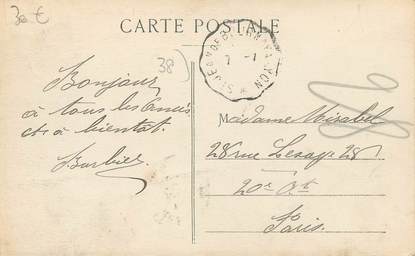 30 €
CARTE POSTALE
38)
7 -1
Bonjour
à tous les amis
et à bientat.
Barbier
Madame Mirabel
28 rue Lesage 28
20e Art
Paris.